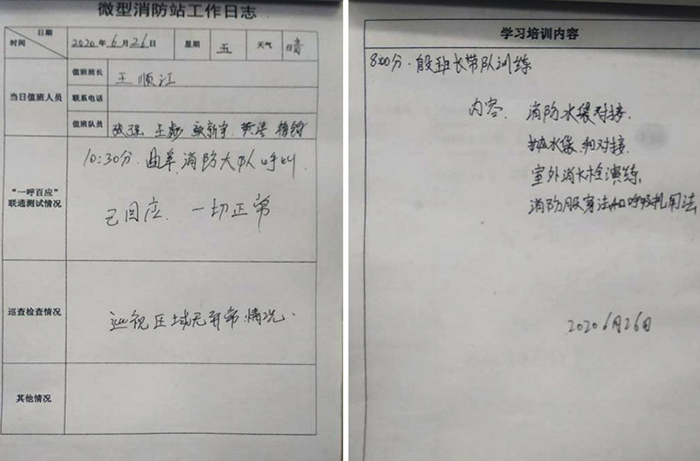 微型消防站工作日志
日期
时间
2020年6月26日
星期
五
天气
晴
当日值班人员
值班班长
王顺江
联系电话
值班队员
张强 王彪
“一呼百应”
联通测试情况
10:30分 曲阜消防大队呼叫
已回应 一切正常
巡查检查情况
巡视区域无异常情况.
其他情况
学习培训内容
8:00分.殷班长带队训练
内容. 消防水袋对接.
水袋和对接.
室外消火栓演练.
消防服穿法和呼吸机用法
2020 6月26日